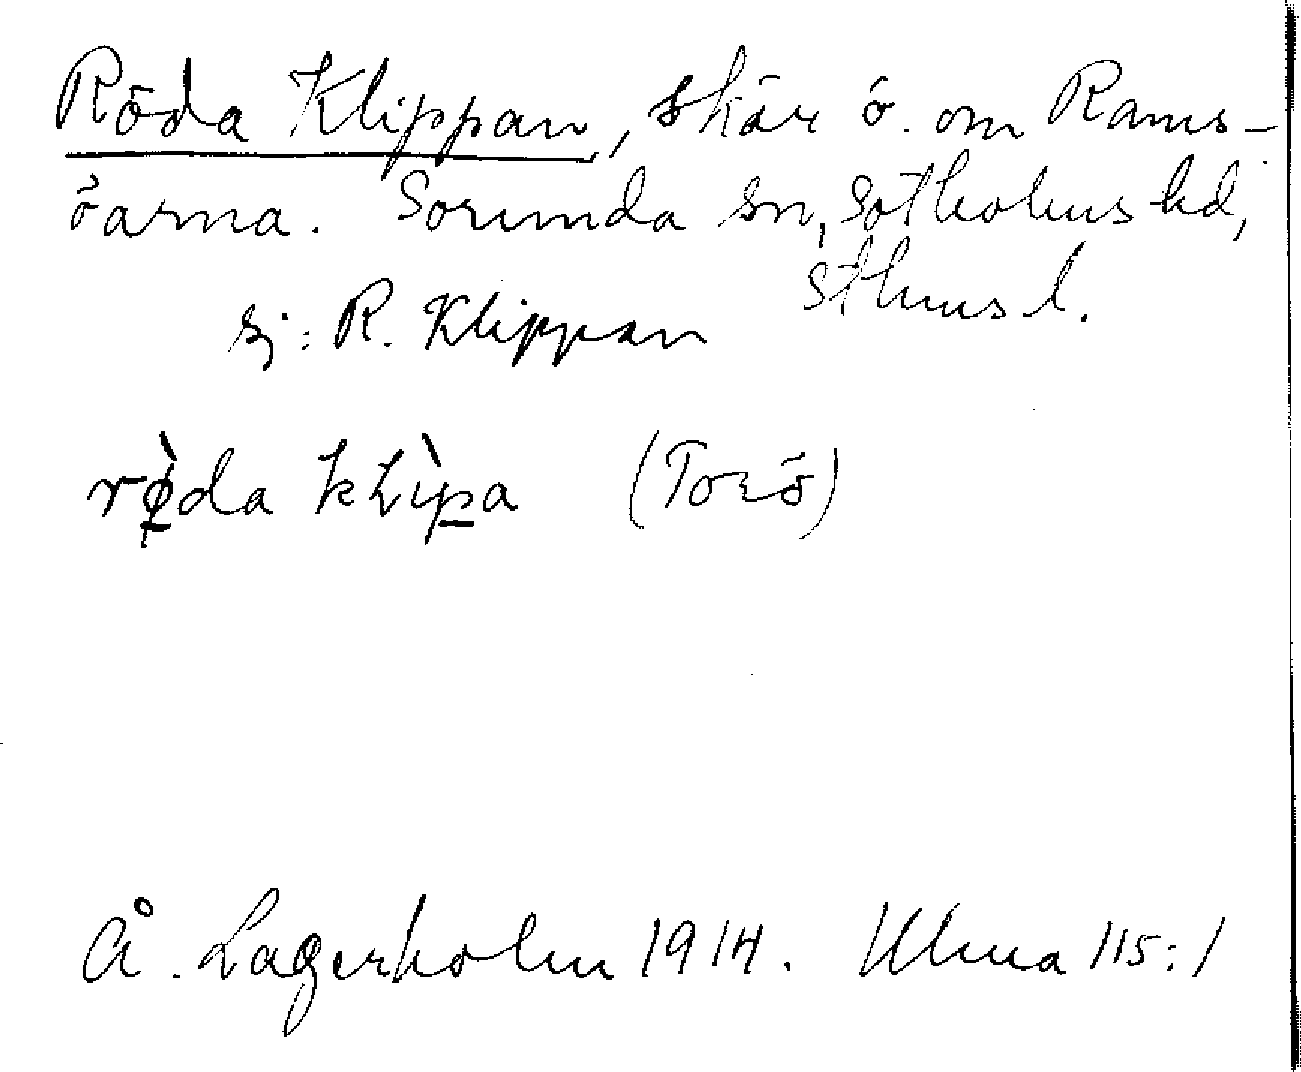 Röda Klippan, skär ö. om Rams-
öarna. Sorunda sn, Sotholms hd,
Sthms l.
sj: R. Klippan
rø̀da klìpa (Torö)
Å. Lagerholm 1914. Ulma 115:1